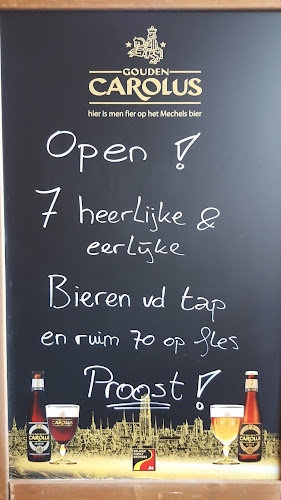 GOUDEN
CAROLUS
hier is men fier op het Mechels bier
Open !
7 heerlijke &
eerlijke
Bieren vd tap
en ruim 70 op fles
Proost !
CAROLUS
CAROLUS